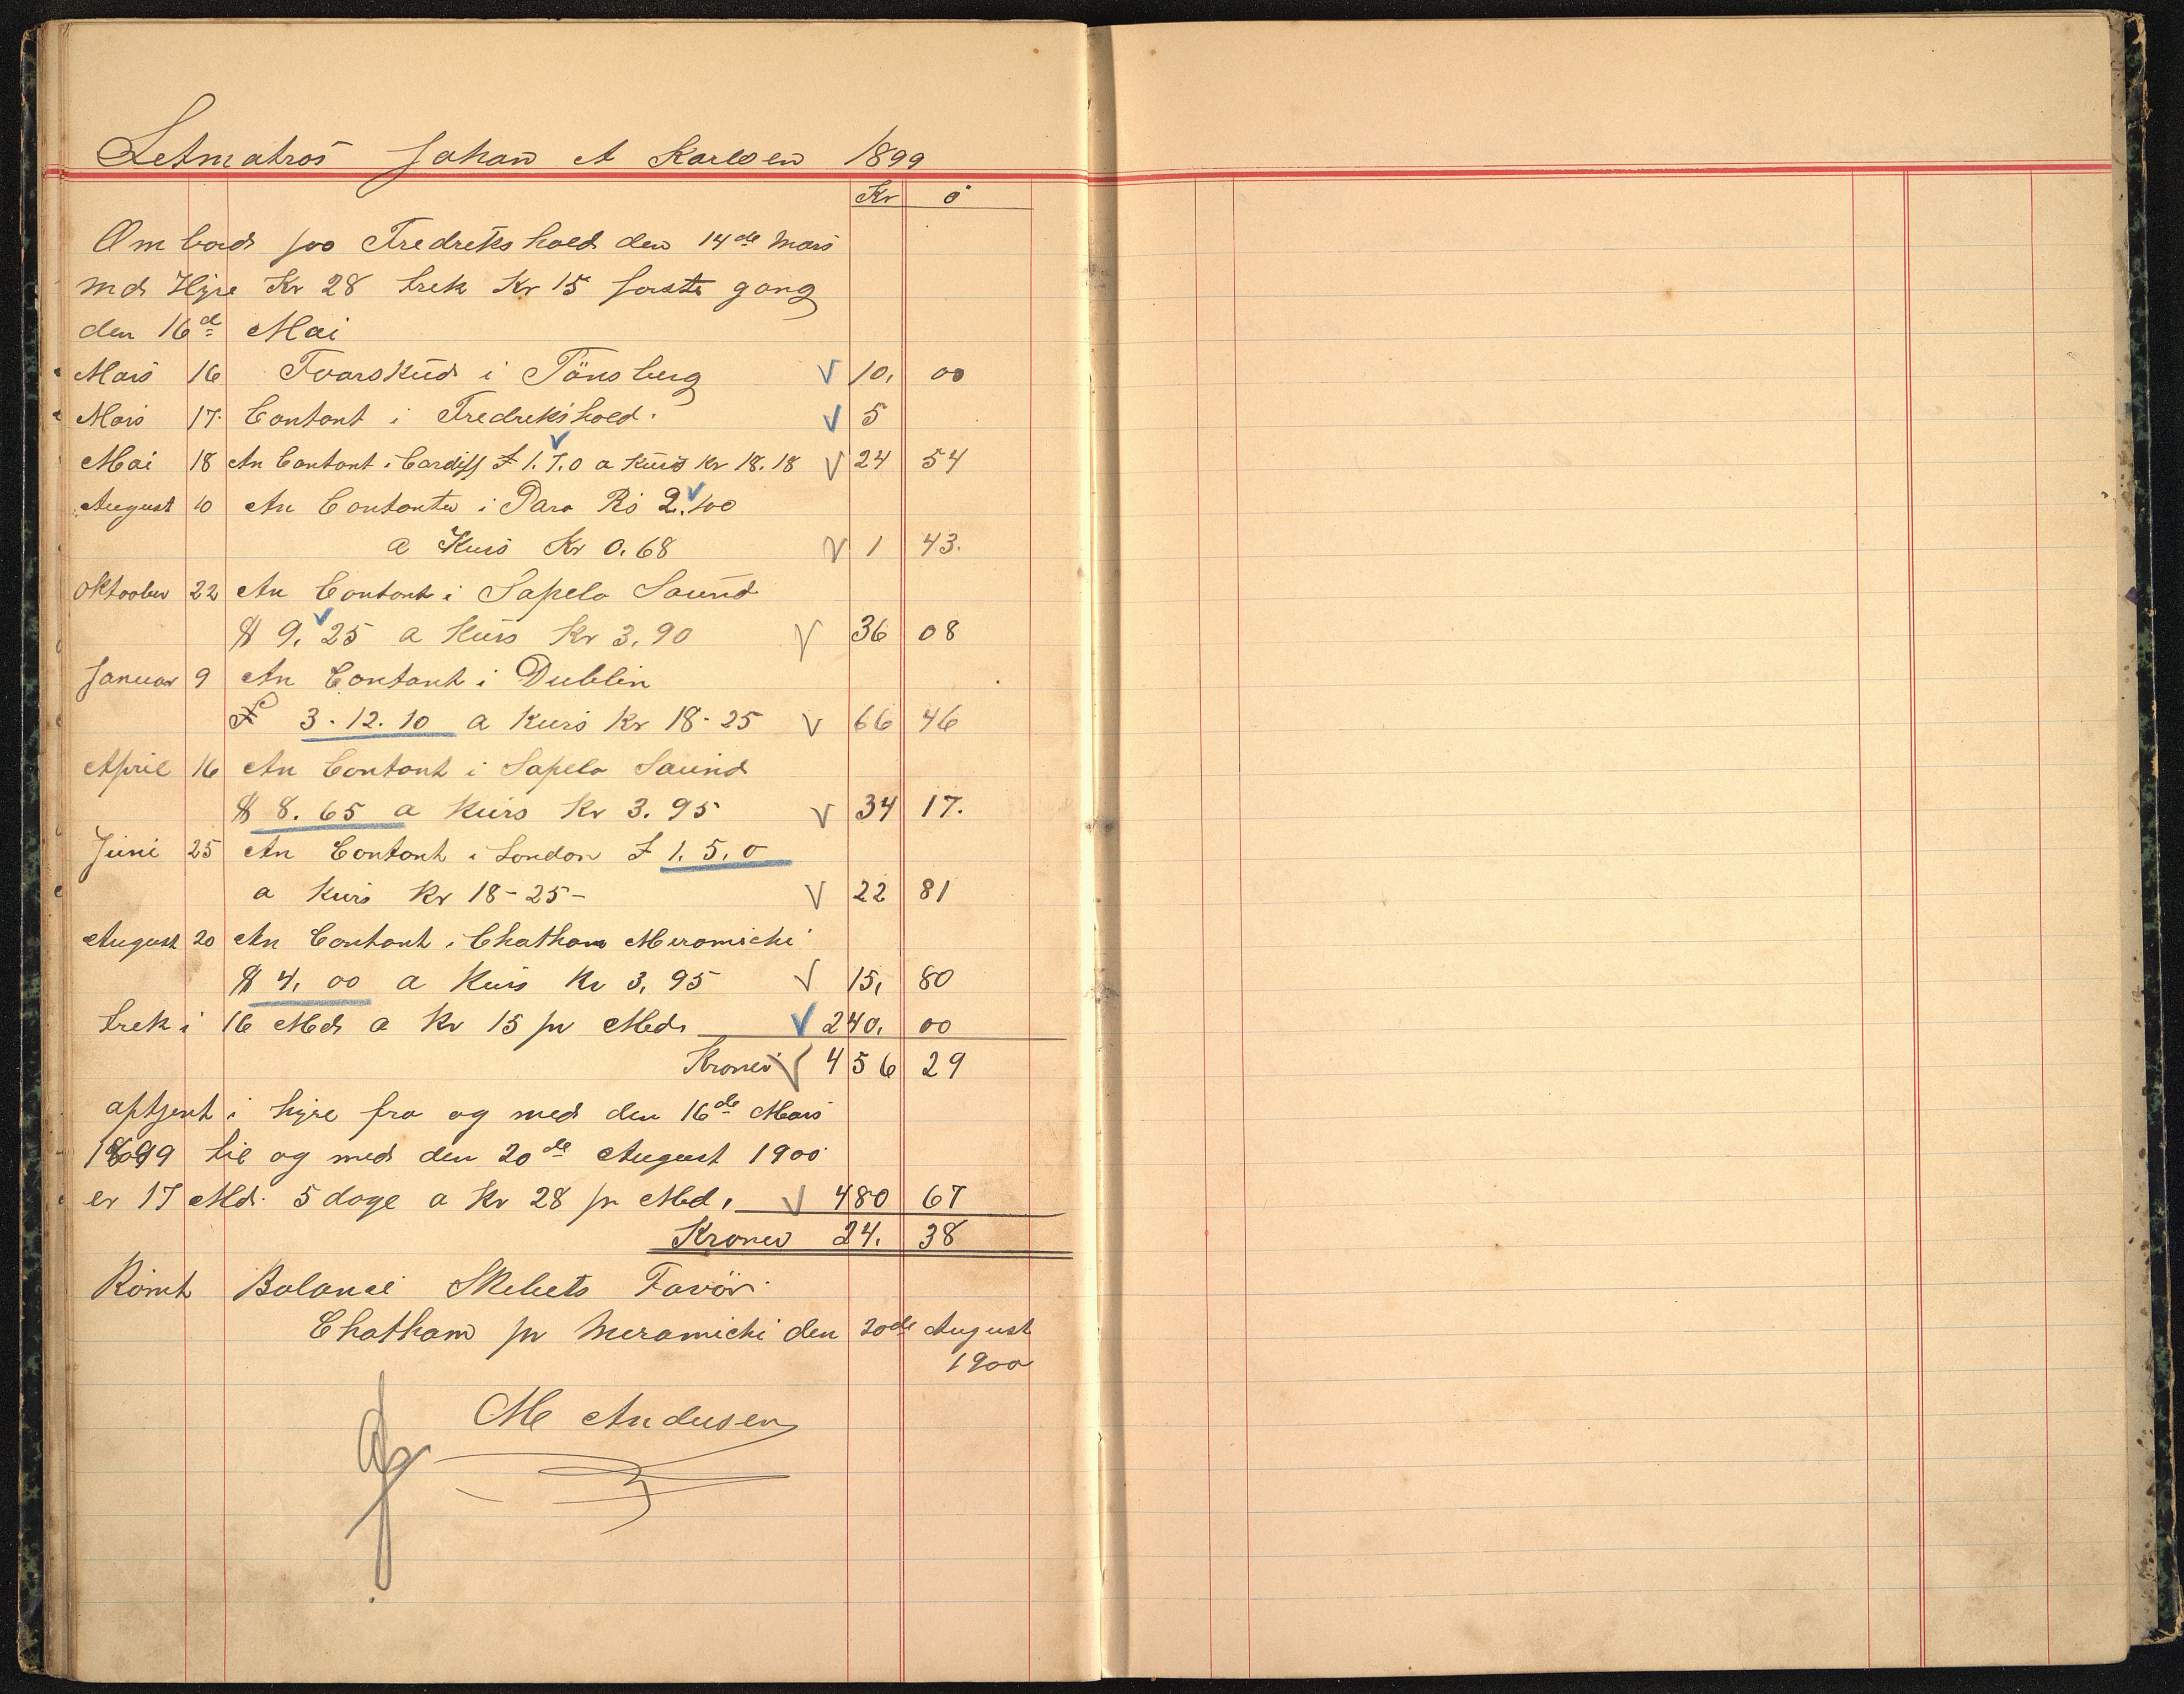 Letmatros Johan A Karlsen 1899
Kr ö
Om bord poo Fredrekshold den 14de Mars
md Hyre Kr 28 trek Kr 15 forste gang
den 16d Mai
Mars 16 Forskud i Tönsberg 10, 00
Mars 17. Contant i Fredrekshold. 5
Mai 18 An Contant i Cardiff £ 1.7.0 a Kurs Kr 18.18 24 54
August 10 An Contanter i Para Rs 2.100
a Kurs Kr 0.68 1 43.
Oktoober 22 An Contant i Sapelo Saund
$ 9.25 a Kurs Kr 3.90 36 08
Januar 9 An Contant i Dublin
£ 3-12.10 a Kurs Kr 18-25 66 46
April 16 An Contant i Sapelo Saund
$ 8.65 a Kurs Kr 3.95 34 17.
Juni 25 An Contant i London £ 1.5.0
a Kurs Kr 18-25- 22 81
August 20 An Contant i Chatham Meramichi
$ 4,00 a Kurs Kr 3,95 15, 80
trek i 16 Md a Kr 15 pr Md. 240, 00
Kroner 456 29
optjent i hyre fra og med den 16de Mars
1899 til og med den 20de August 1900
er 17 Md. 5 dage a Kr 28 pr Md. 480 67
Kroner 24. 38
Römt Balanse Skibets Favör.
Chatham pr Meramichi den 20de August
1900
M Andersen